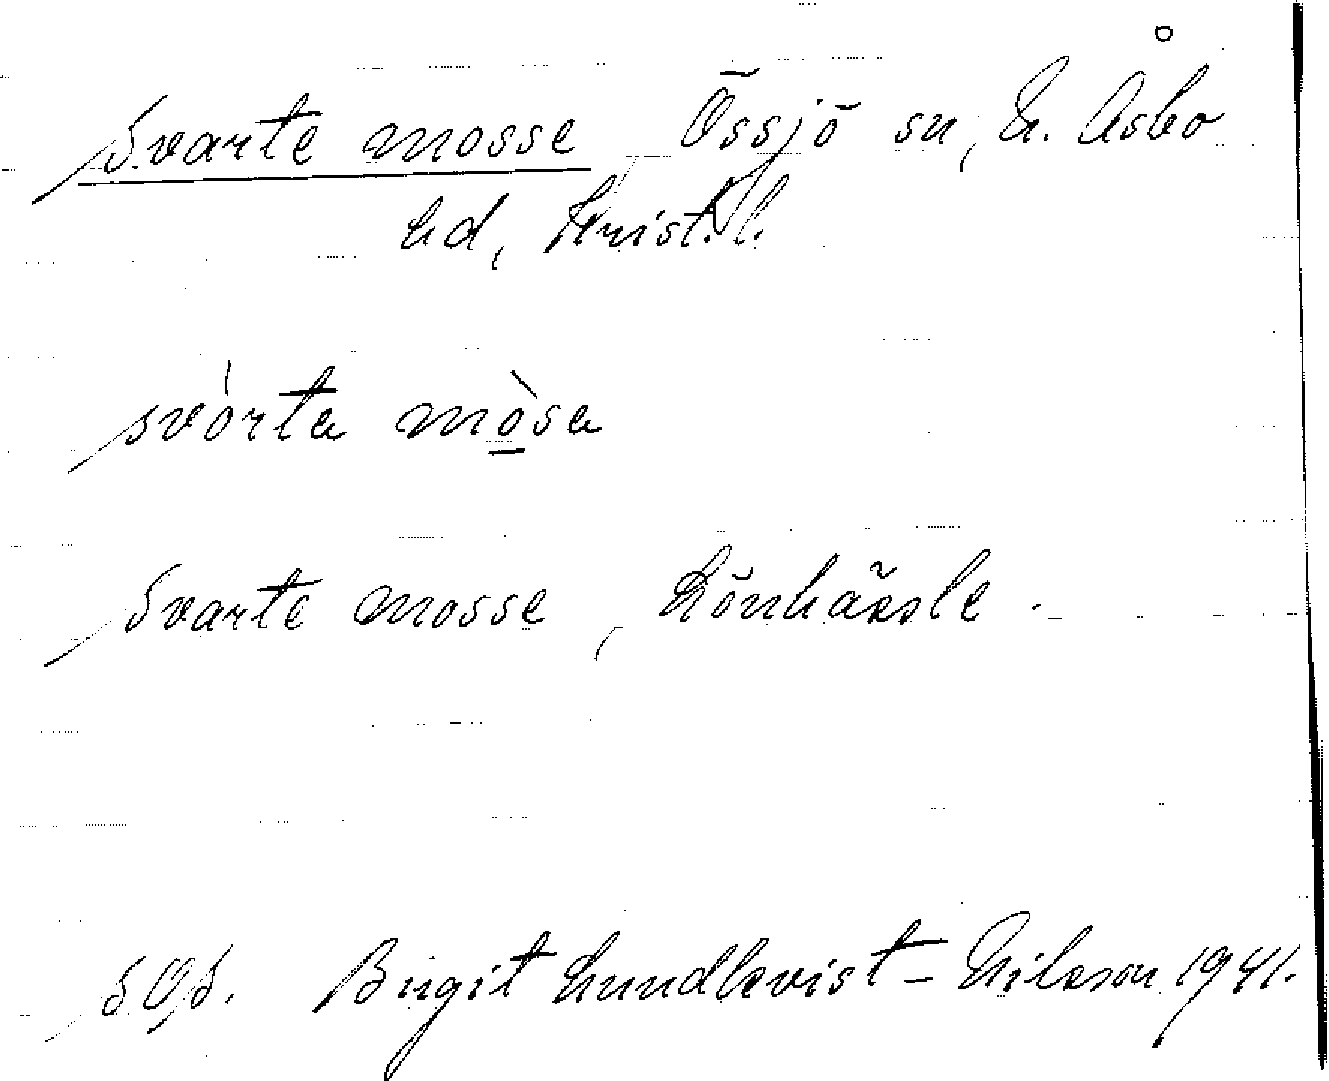 Svarte mosse Össjö sn, N. Åsbo
hd, Krist. l.
svòrta mòsa
Svarte mosse, Lönhässle.
SOS. Birgit Lundkvist-Nilsson 1941.